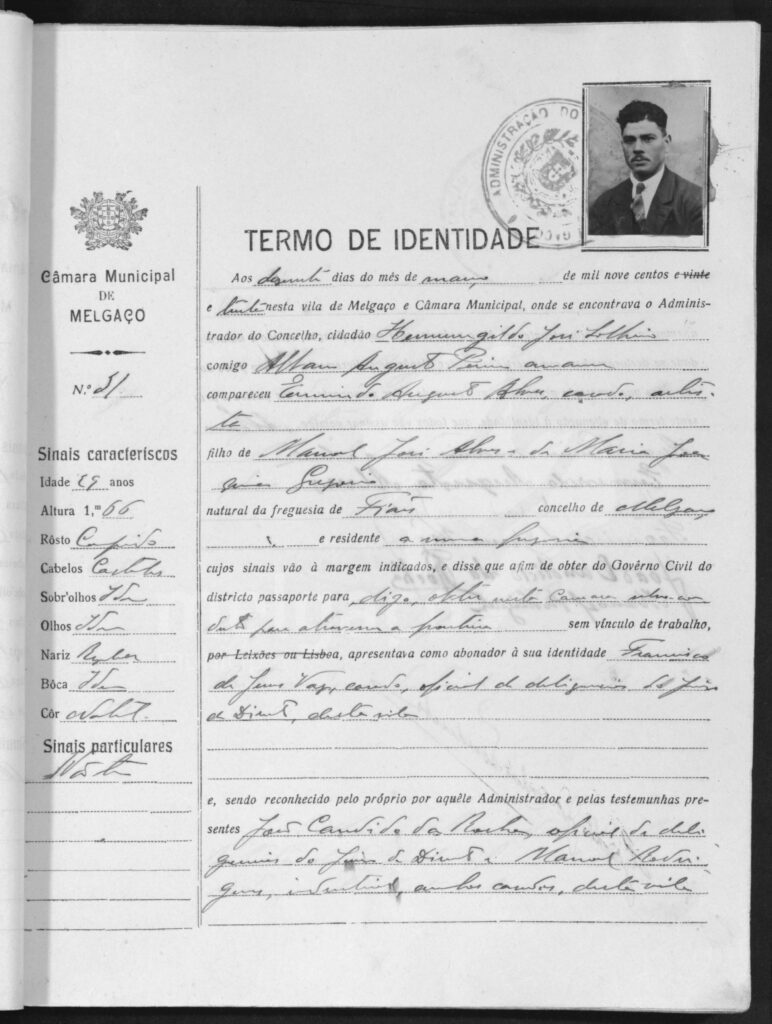 ADMINISTRAÇÃO DO
TERMO DE IDENTIDADE
Câmara Municipal
DE
MELGAÇO
N.º 31
Sinais caracteríscos
Idade 29 anos
Altura 1,ᵐ 66
Rôsto Comprido
Cabelos Castanhos
Sobr'olhos Idem
Olhos Idem
Nariz Regular
Bôca Idem
Côr natural
Sinais particulares
Aos dias do mês de março de mil nove centos e vinte
e trinta nesta vila de Melgaço e Câmara Municipal, onde se encontrava o Adminis-
trador do Concelho, cidadão Hermenegildo José Solheiro
comigo Albano Augusto
compareceu Ermindo Augusto Alves, casado, artis-
ta
filho de Manoel José Alves e de Maria Joa-
quina Gregorio
natural da freguesia de Fiães concelho de Melgaço
e residente na mesma freguesia
cujos sinais vão à margem indicados, e disse que afim de obter do Govêrno Civil do
districto passaporte para, digo, obter nesta Camara salvo-con
duto para atravessar a fronteira sem vínculo de trabalho,
por Leixões ou Lisboa, apresentava como abonador à sua identidade Francisco
de Jesus Vaz, casado, oficial de deligencias do Juizo
de Direito, desta vila
e, sendo reconhecido pelo próprio por aquêle Administrador e pelas testemunhas pre-
sentes João Candido da Rocha, oficial de deli-
gencias do Juizo de Direito e Manoel Rodri-
gues, industrial, ambos casados, desta vila